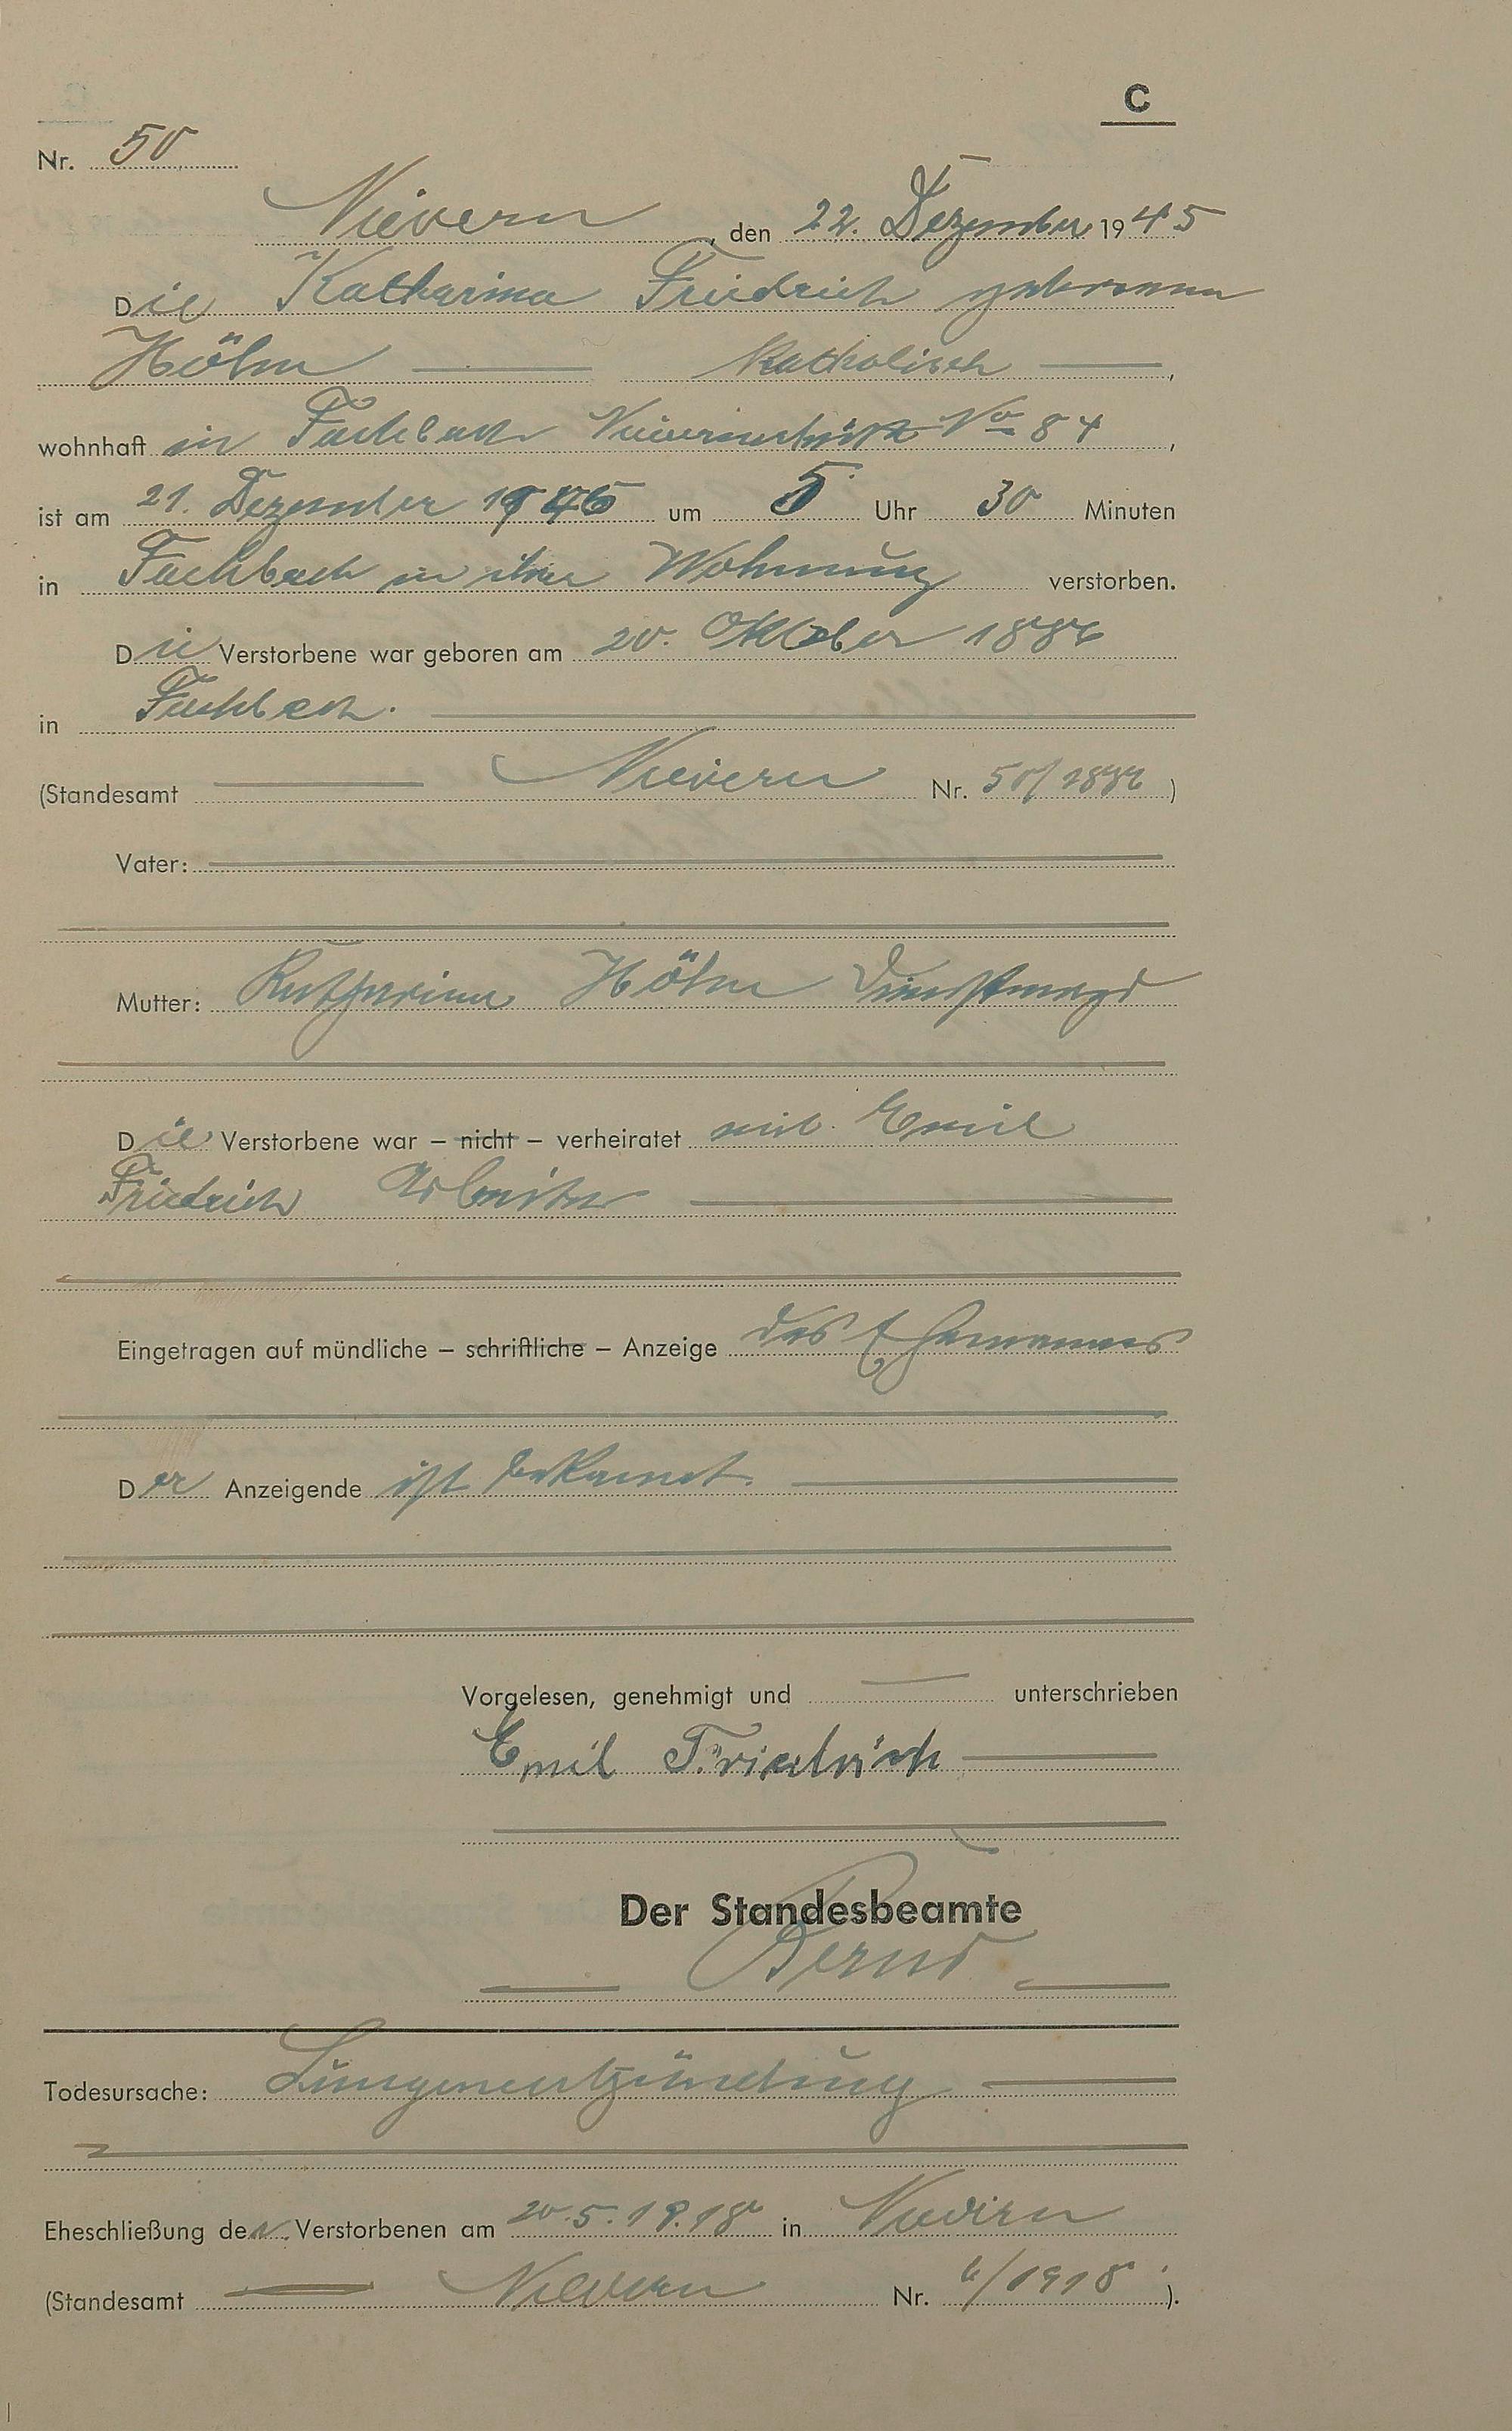 C
Nr. 50
Nievern, den 22. Dezember 1945
Die Katharina Friedrich geborene
Höhn katholisch,
wohnhaft in Fachbach Nievernerhütte No 84,
ist am 21. Dezember 1945 um 5 Uhr 30 Minuten
in Fachbach in ihrer Wohnung verstorben.
Die Verstorbene war geboren am 20. Oktober 1886
in Fachbach.
(Standesamt Nievern Nr. 50/1886)
Vater:
Mutter: Katharina Höhn Dienstmagd
Die Verstorbene war – nicht – verheiratet mit Emil
Friedrich Arbeiter
Eingetragen auf mündliche – schriftliche – Anzeige des Ehemannes
Der Anzeigende ist bekannt.
Vorgelesen, genehmigt und unterschrieben
Emil Friedrich
Der Standesbeamte
Todesursache: Lungenentzündung
Eheschließung der Verstorbenen am 20.5.1918 in Nievern
(Standesamt Nievern Nr. 6/1918).